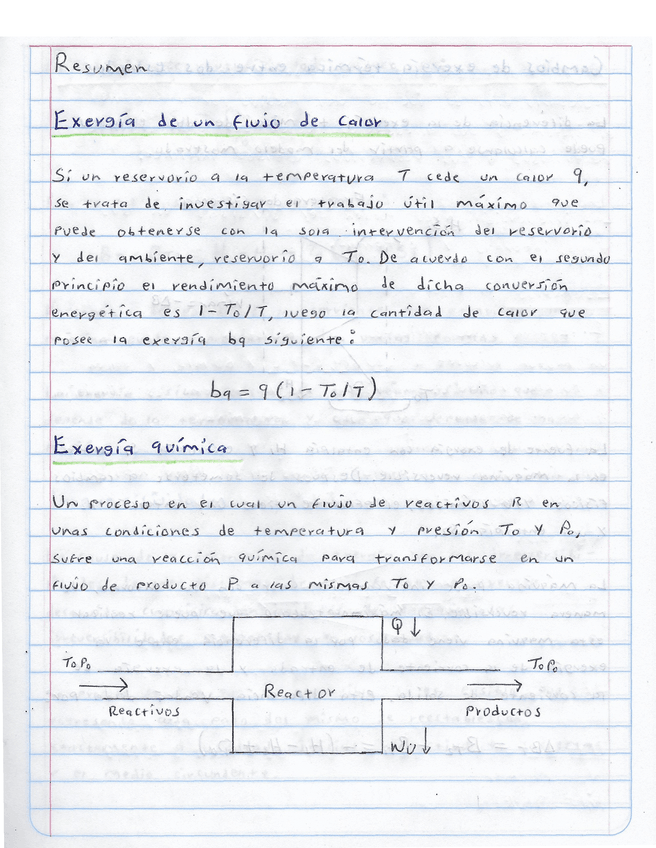 Resumen
Exergía de un flujo de calor
Si un reservorio a la temperatura T cede un calor q,
se trata de investigar el trabajo útil máximo que
puede obtenerse con la sola intervención del reservorio
y del ambiente, reservorio a To. De acuerdo con el segundo
principio el rendimiento máximo de dicha conversión
energética es 1-To/T, luego la cantidad de calor que
posee la exergía bq siguiente:
bq = q (1 - To/T)
Exergía química
Un proceso en el cual un flujo de reactivos R en
unas condiciones de temperatura y presión To y Po,
sufre una reacción química para transformarse en un
flujo de producto P a las mismas To y Po.
Q ↓
ToPo
ToPo
Reactor
Reactivos
Productos
Wu ↓